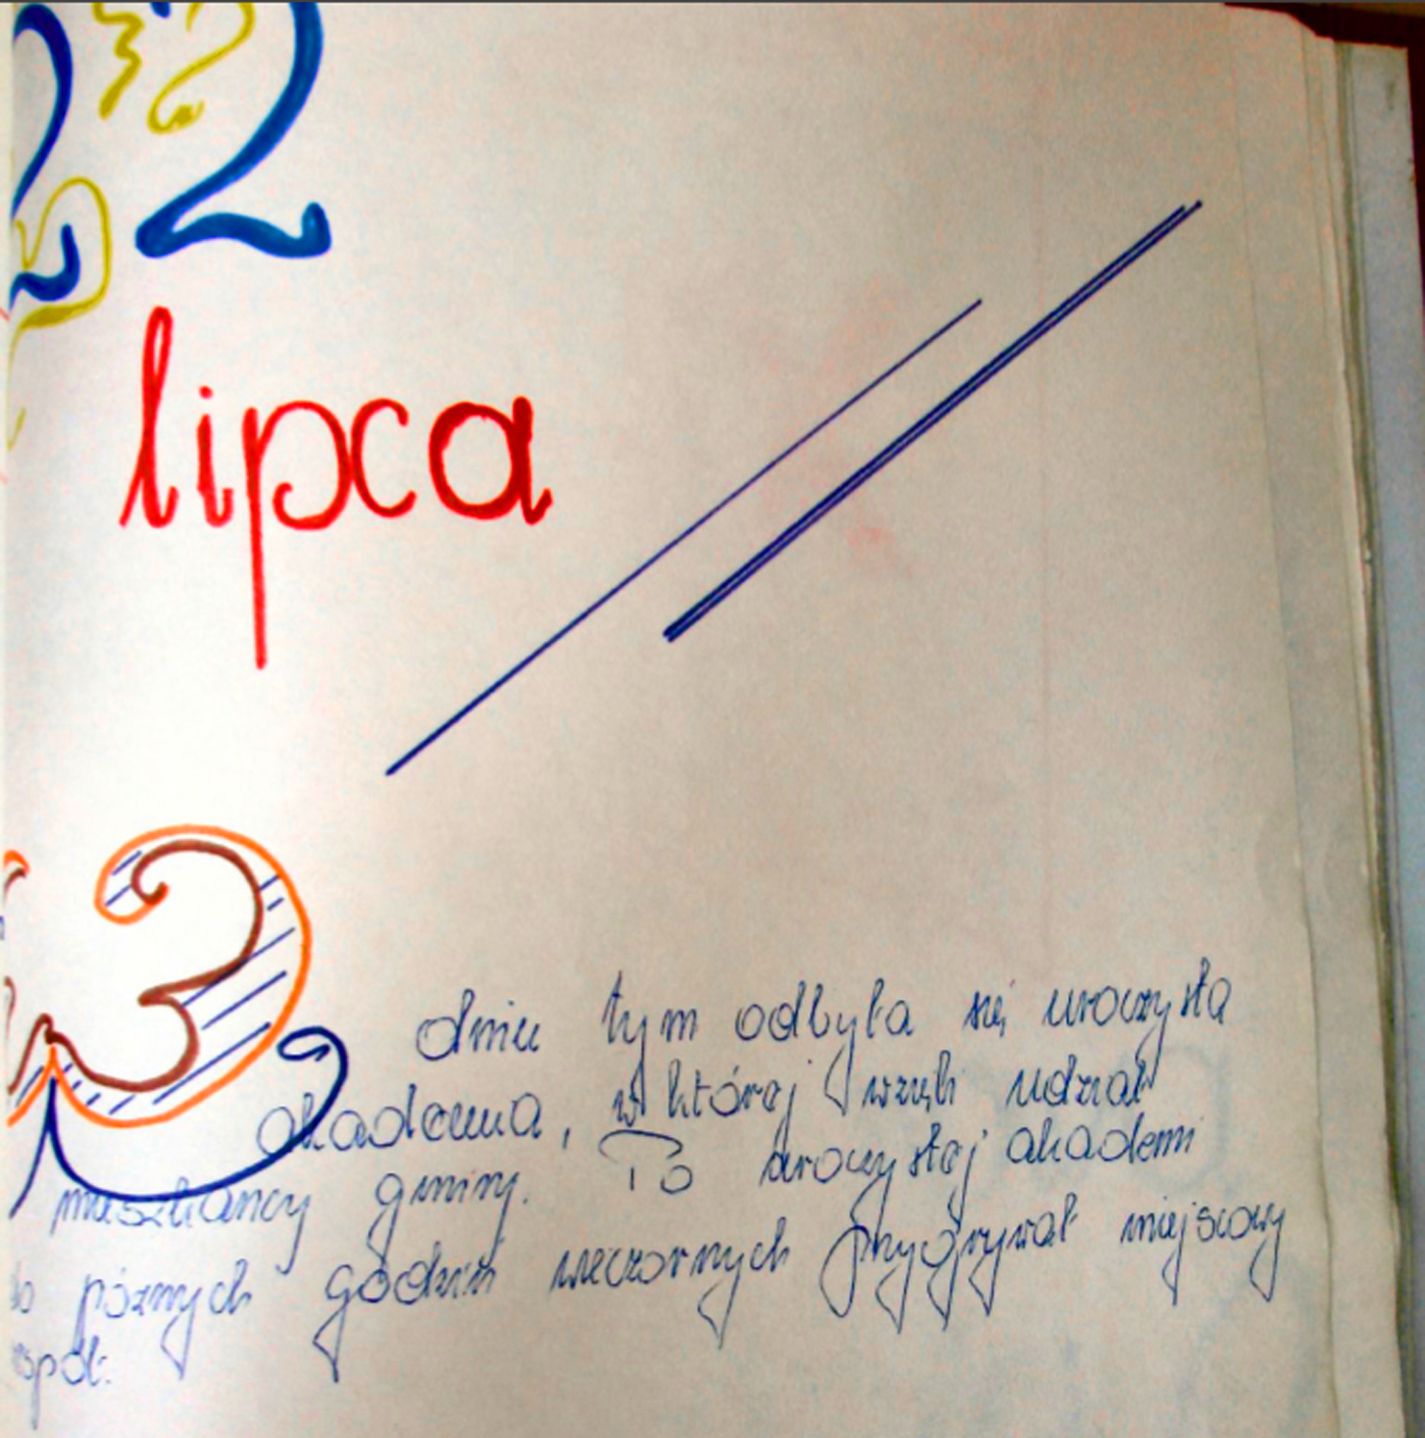 22
lipca
W dniu tym odbyła się uroczysta
akademia, w której wzięli udział
mieszkańcy gminy. Po uroczystej akademi
do późnych godzin wieczornych przygrywał miejscowy